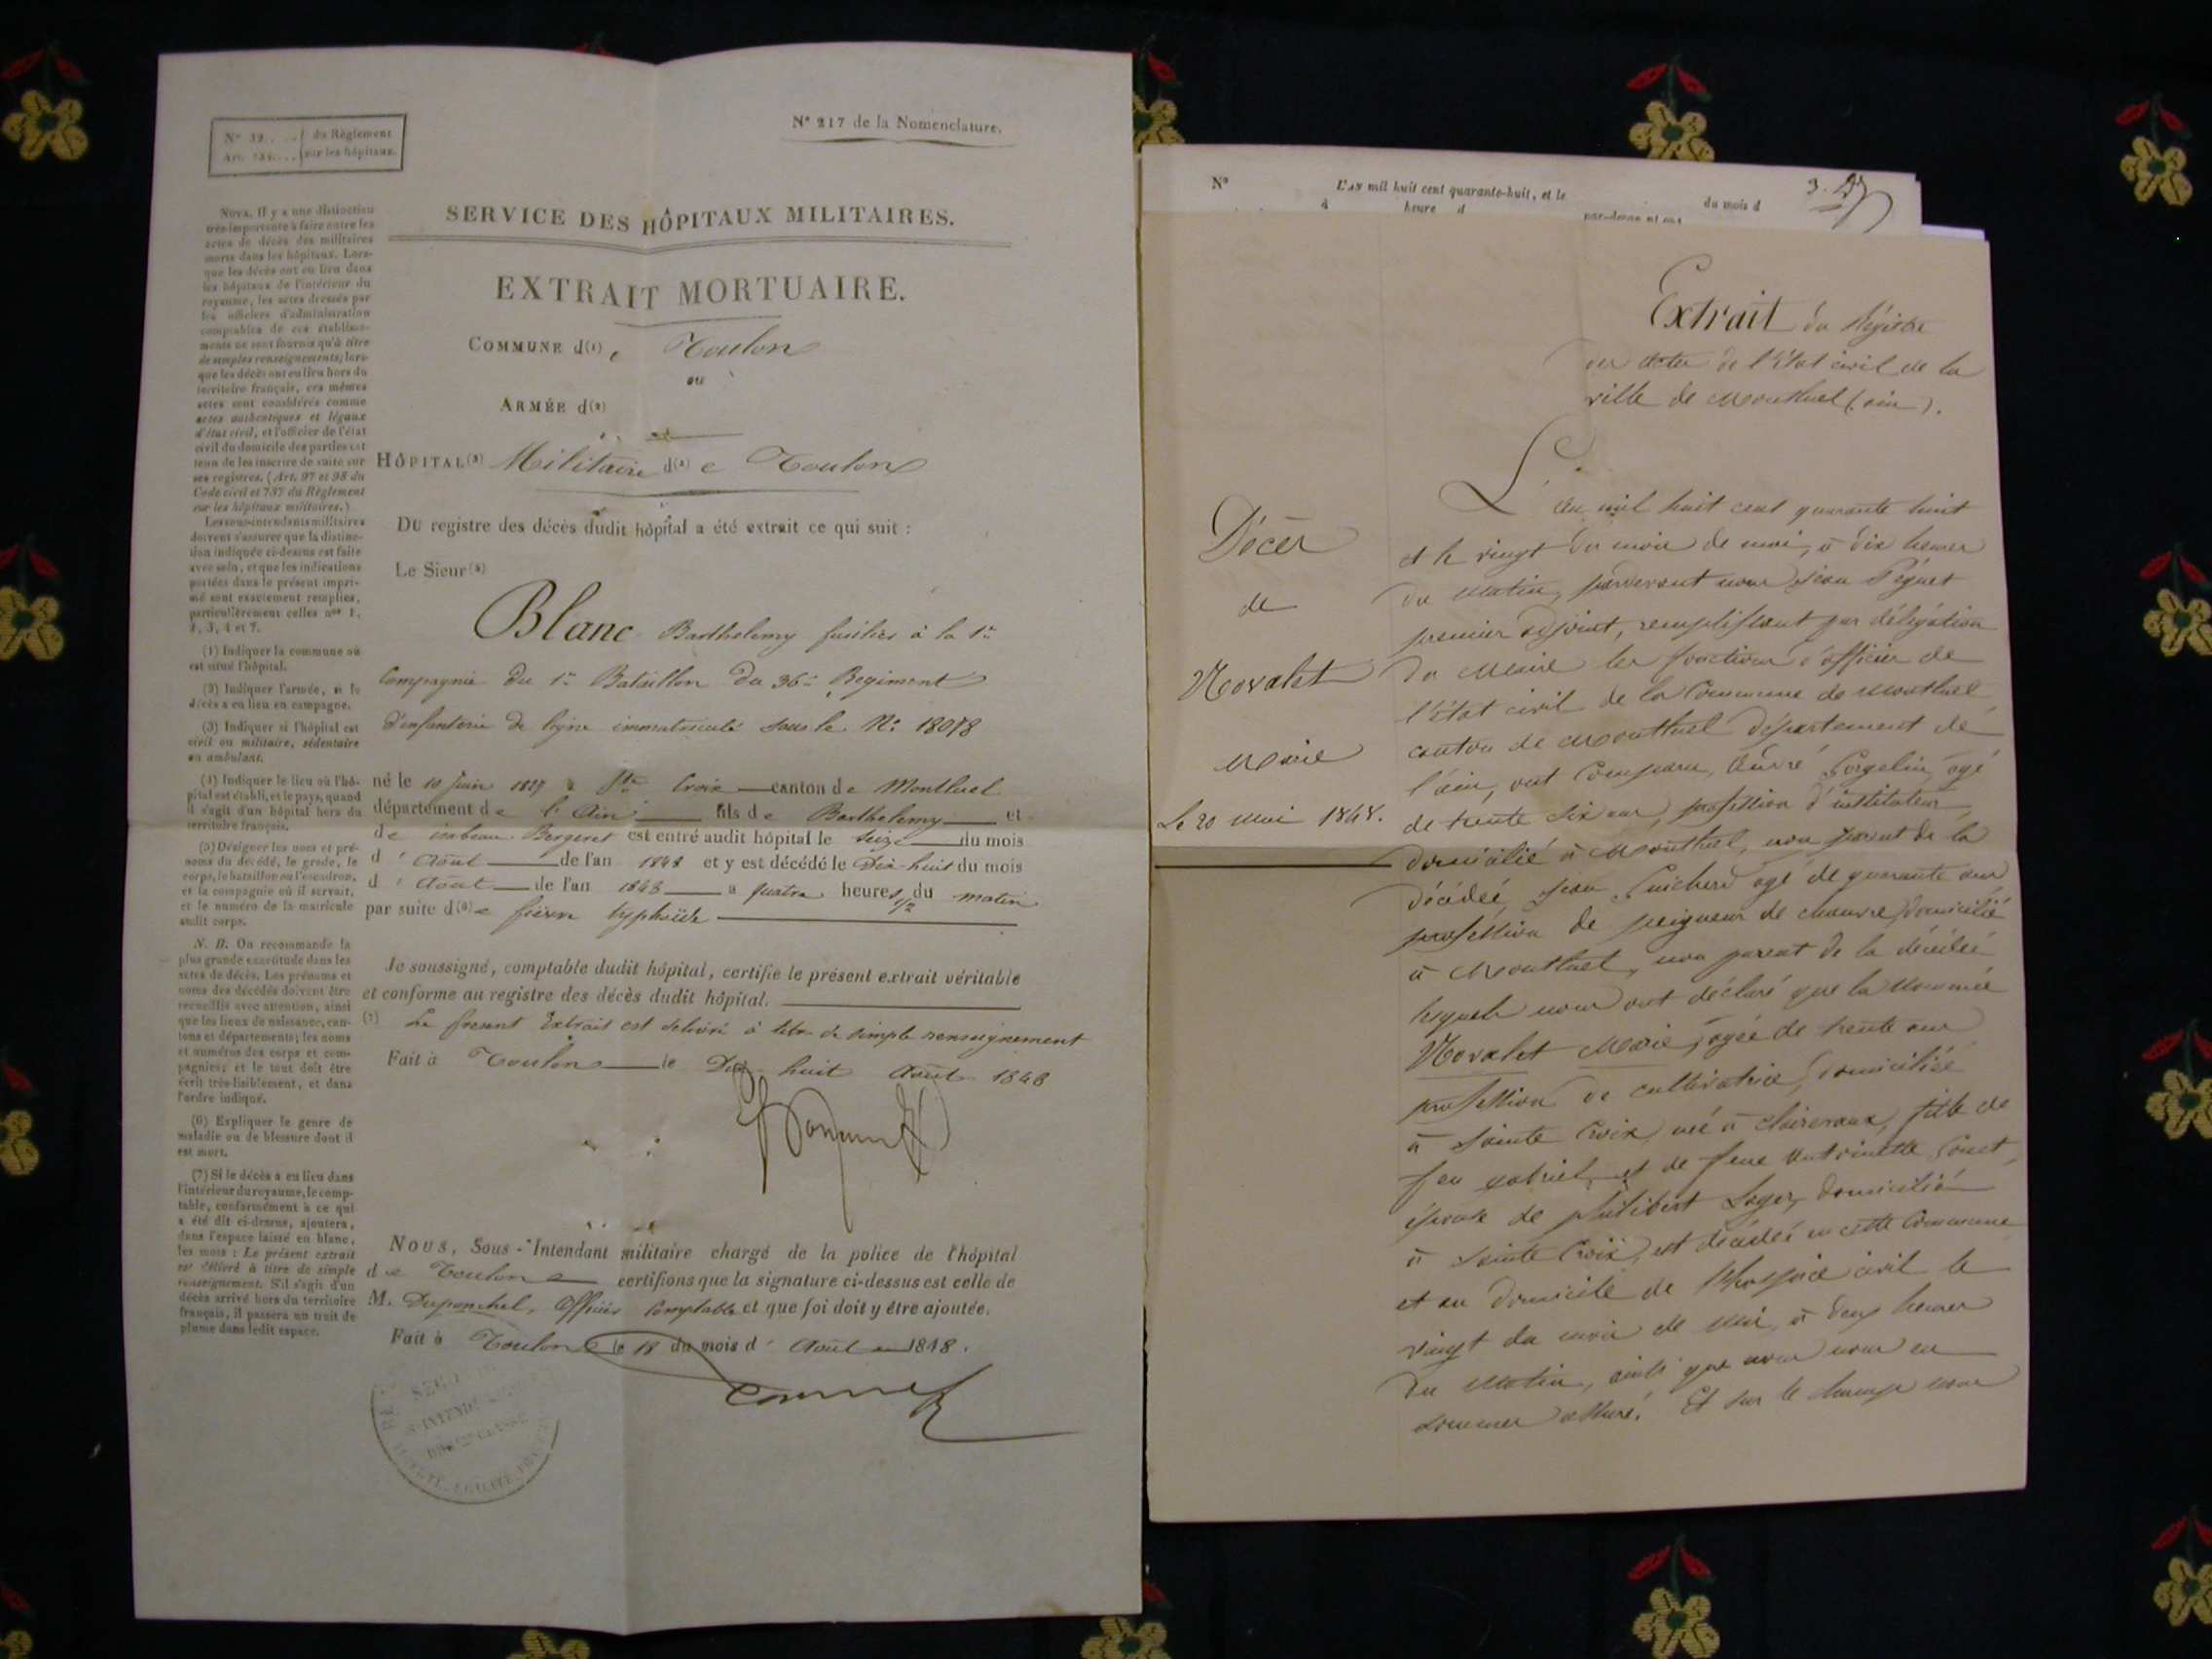 N° 52.... du Règlement
Art. 737.... sur les hôpitaux.
N° 217 de la Nomenclature.
SERVICE DES HÔPITAUX MILITAIRES.
EXTRAIT MORTUAIRE.
COMMUNE d(1) e Toulon
ou
ARMÉE d(2)
HÔPITAL(3) Militaire d(4) e Toulon
DU registre des décès dudit hôpital a été extrait ce qui suit :
Le Sieur(5)
Blanc Barthelemy fusilier à la 1re
Compagnie du 1er Bataillon du 36e Regiment
d'infanterie de ligne immatriculé sous le No 18078
né le 10 Juin 1827 à Ste Croix canton de Montluel
département de l'Ain fils de Barthelemy et
de Bergeret est entré audit hôpital le Seize du mois
d'Août de l'an 1848 et y est décédé le Dix-huit du mois
d'Août de l'an 1848 a quatre heures 1/2 du matin
par suite d(6)e fièvre typhoïde
Je soussigné, comptable dudit hôpital, certifie le présent extrait véritable
et conforme au registre des décès dudit hôpital.
(7) Le present Extrait est délivré à titre de simple renseignement
Fait à Toulon le Dix-huit Août 1848
NOUS, Sous-Intendant militaire chargé de la police de l'hôpital
de Toulon certifions que la signature ci-dessus est celle de
M. Duponchel, Officier Comptable et que foi doit y être ajoutée.
Fait à Toulon le 18 du mois d'Août 1848.
NOTA. Il y a une distinction
très importante à faire entre les
actes de décès des militaires
morts dans les hôpitaux. Lors-
que les décès ont eu lieu dans
les hôpitaux de l'intérieur du
royaume, les actes dressés par
les officiers d'administration
comptables de ces établisse-
ments ne sont fournis qu'à titre
de simples renseignements; lors-
que les décès ont eu lieu hors du
territoire français, ces mêmes
actes sont considérés comme
actes authentiques et légaux
d'état civil, et l'officier de l'état
civil du domicile des parties est
tenu de les inscrire de suite sur
ses registres. (Art. 97 et 98 du
Code civil et 737 du Règlement
sur les hôpitaux militaires.)
Les sous-intendants militaires
doivent s'assurer que la distinc-
tion indiquée ci-dessus est faite
avec soin, et que les indications
portées dans le présent impri-
mé sont exactement remplies,
particulièrement celles nos 1,
2, 3, 4 et 7.
(1) Indiquer la commune où
est situé l'hôpital.
(2) Indiquer l'armée, si le
décès a eu lieu en campagne.
(3) Indiquer si l'hôpital est
civil ou militaire, sédentaire
ou ambulant.
(4) Indiquer le lieu où l'hô-
pital est établi, et le pays, quand
il s'agit d'un hôpital hors du
territoire français.
(5) Désigner les nom et pré-
noms du décédé, le grade, le
corps, le bataillon ou l'escadron,
et la compagnie où il servait,
et le numéro de la matricule
audit corps.
N. B. On recommande la
plus grande exactitude dans les
actes de décès. Les prénoms et
noms des décédés doivent être
recueillis avec attention, ainsi
que les lieux de naissance, can-
tons et départements; les noms
et numéros des corps et com-
pagnies; et le tout doit être
écrit très-lisiblement, et dans
l'ordre indiqué.
(6) Expliquer le genre de
maladie ou de blessure dont il
est mort.
(7) Si le décès a eu lieu dans
l'intérieur du royaume, le comp-
table, conformément à ce qui
a été dit ci-dessus, ajoutera,
dans l'espace laissé en blanc,
les mots : Le présent extrait
est délivré à titre de simple
renseignement. S'il s'agit d'un
décès arrivé hors du territoire
français, il passera un trait de
plume dans ledit espace.
N° L'AN mil huit cent quarante-huit, et le du mois d
à heure d
Extrait du Régistre
des actes de l'Etat civil de la
ville de Montluel (ain).
Décès
de
Novalet
Marie
Le 20 Mai 1848.
L'an mil huit cent quarante huit
et le vingt du mois de mai, à dix heures
du matin, pardevant nous Jean Péguet
premier adjoint, remplissant par délégation
du Maire les fonctions d'officier de
l'état civil de la Commune de Montluel
canton de Montluel département de
l'ain, ont comparu, André agé
de trente six ans, profession d'instituteur,
domicilié à Montluel, non parent de la
décédée, Jean Guichard agé de quarante ans
profession de peigneur de chanvre, domicilié
à Montluel, non parent de la décédée
lesquels nous ont déclaré que la nommée
Novalet Marie, agée de trente ans
profession de cultivatrice, domiciliée
à Sainte Croix, née à Clairvaux, fille de
feu gabriel et de feue Antoinette
épouse de philibert Loyer, domicilié
à Sainte Croix, est décédée en cette Commune
et au domicile de l'hospice civil le
vingt du mois de Mai, à deux heures
du matin, ainsi que nous nous en
sommes assuré. Et sur le champ nous